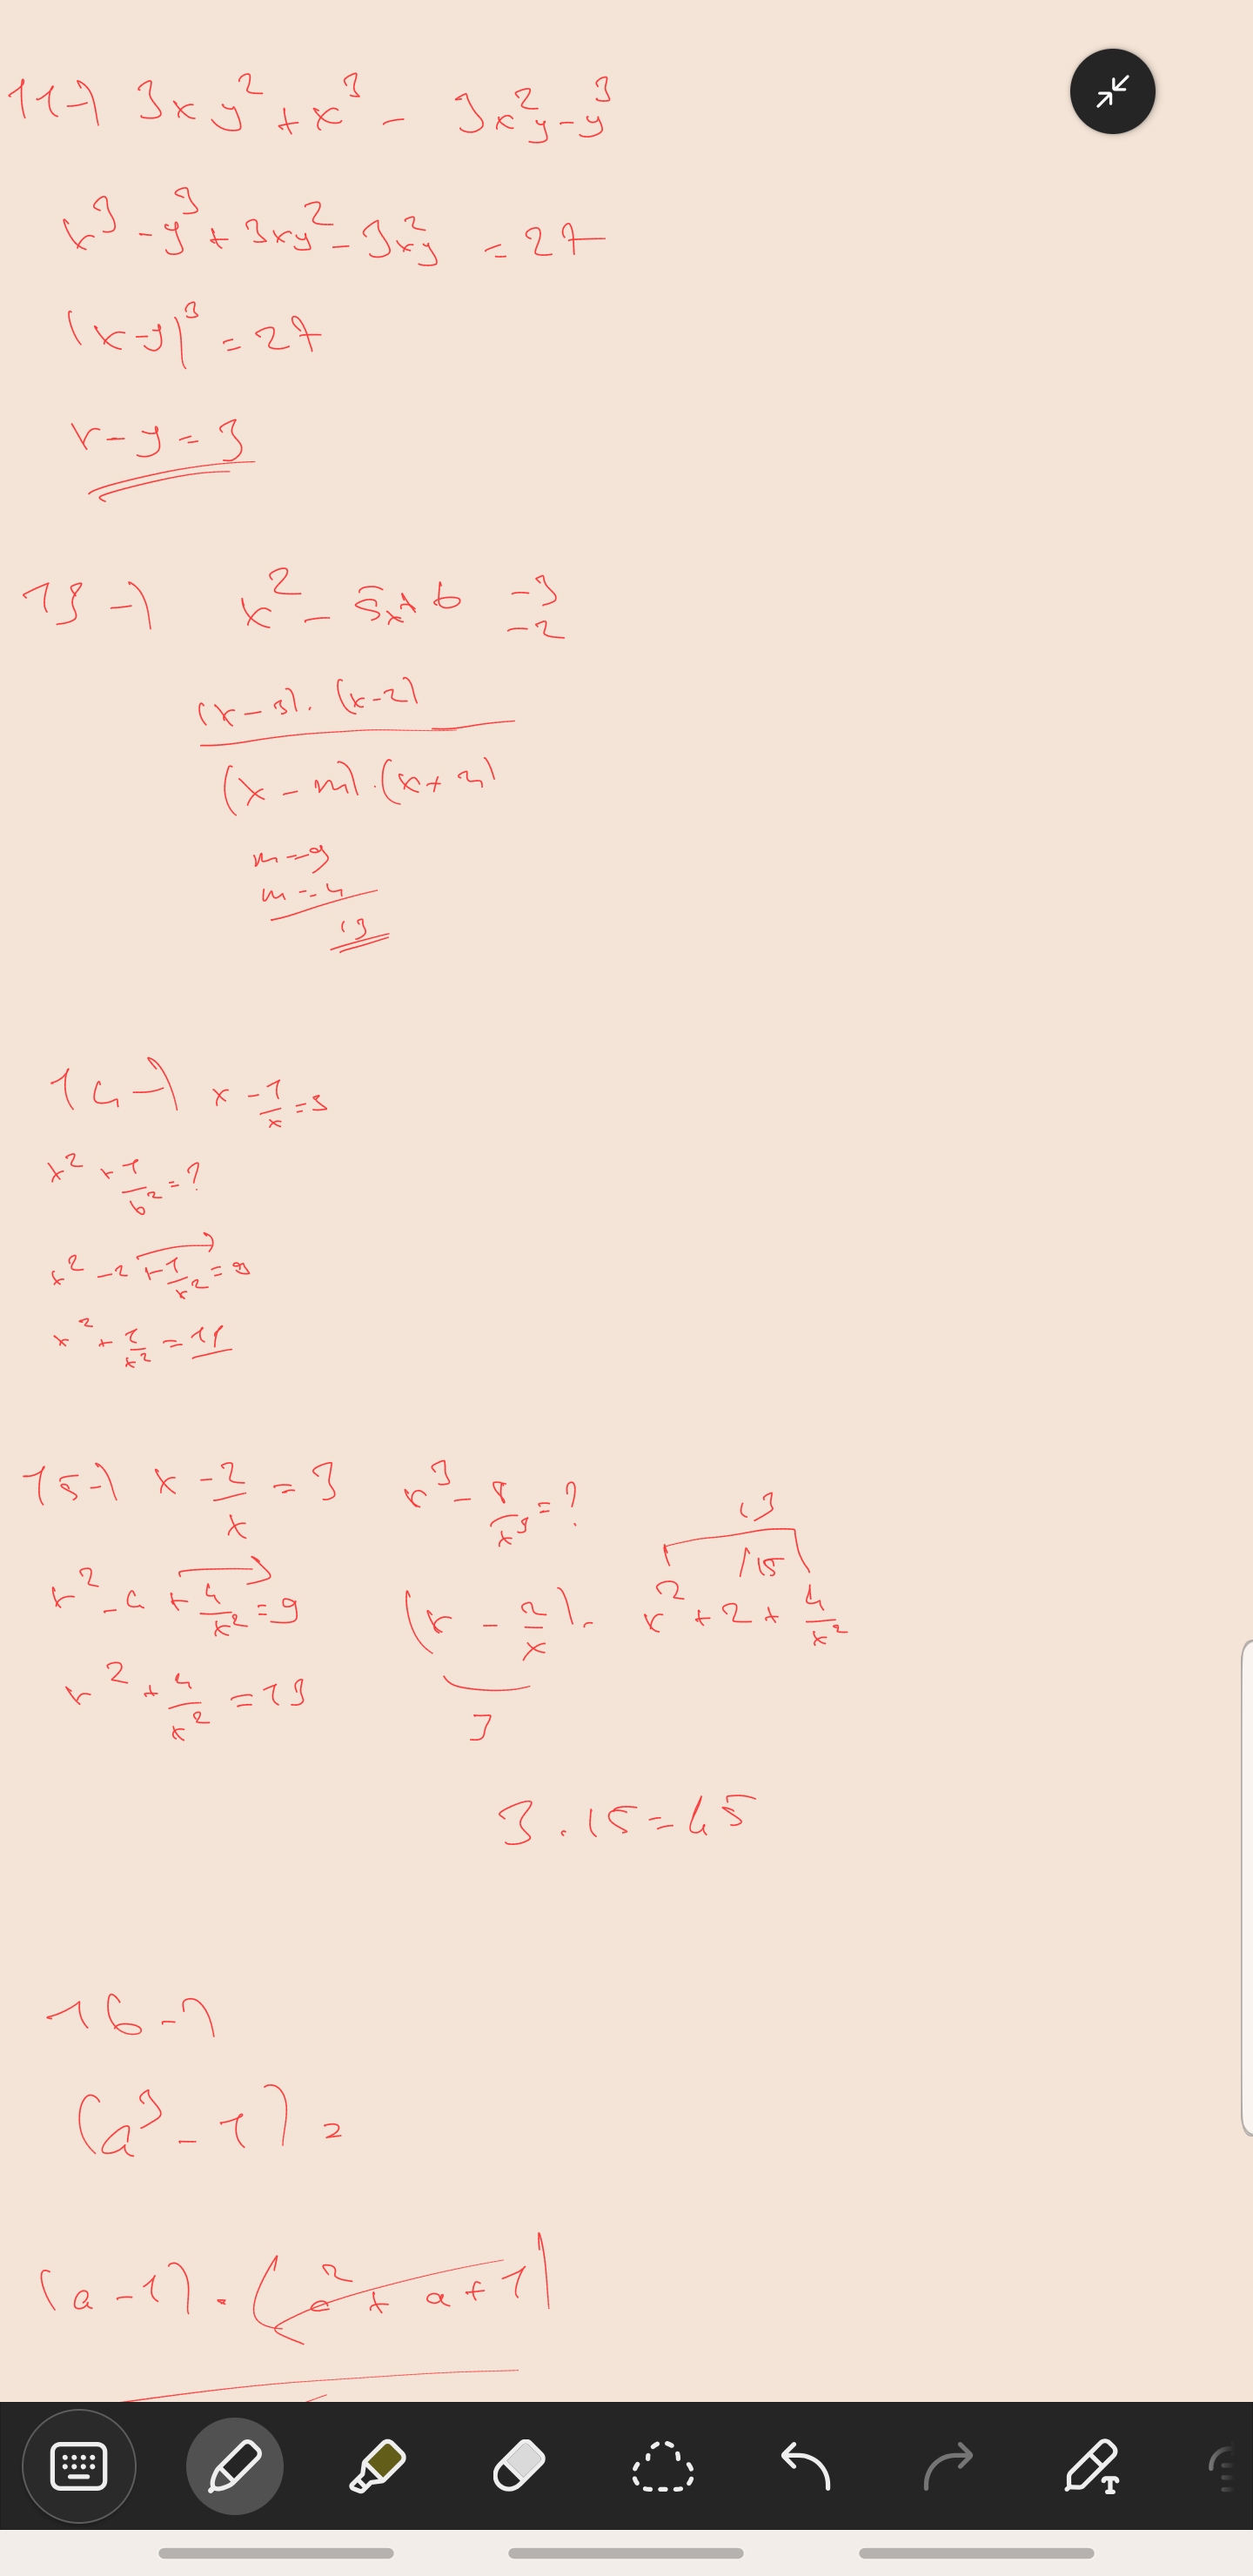 11-) 3xy² + x³ - 3x²y - y³
x³ - y³ + 3xy² - 3x²y = 27
(x-y)³ = 27
x - y = 3
13-) x² - 5x + 6 -3
-2
(x-3).(x-2)
(x-m).(x+n)
m = 9
m = -4
13
14-) x - 1/x = 3
x² + 1/b² = ?
x² - 2 + 1/x² = 9
x² + 1/x² = 11
15-) x - 2/x = 3 x³ - 8/x³ = ? 13
15
x² - 4 + 4/x² = 9 (x - 2/x). x² + 2 + 4/x²
x² + 4/x² = 13
3
3.15=45
16-)
(a³ - 1) =
(a-1).(a² + a + 1)
T